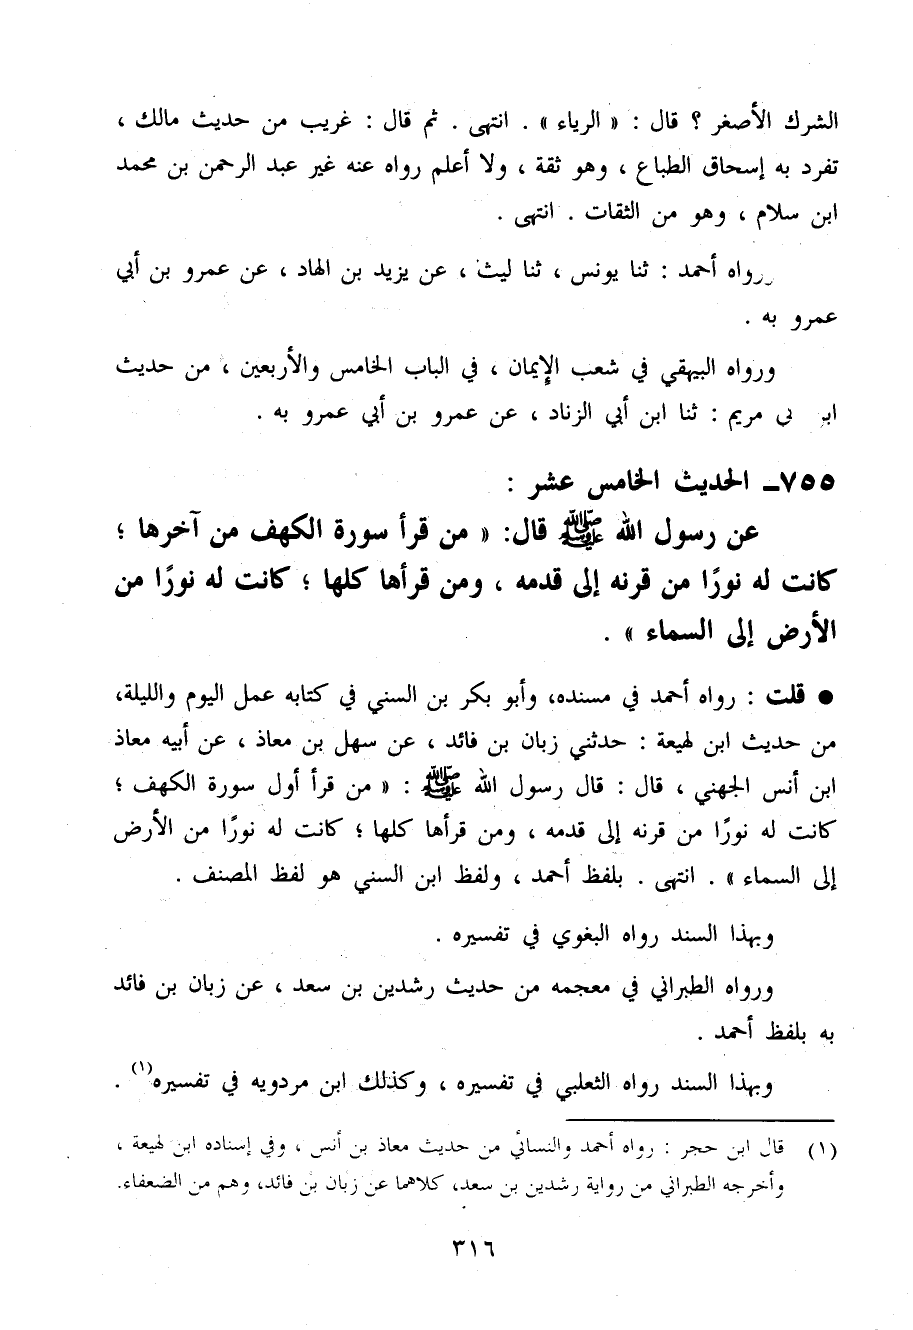 الشرك الأصغر ؟ قال : « الرياء » . انتهى . ثم قال : غريب من حديث مالك ،
تفرد به إسحاق الطباع ، وهو ثقة ، ولا أعلم رواه عنه غير عبد الرحمن بن محمد
ابن سلام ، وهو من الثقات . انتهى .
ورواه أحمد : ثنا يونس ، ثنا ليث ، عن يزيد بن الهاد ، عن عمرو بن أبي
عمرو به .
ورواه البيهقي في شعب الإيمان ، في الباب الخامس والأربعين ، من حديث
مريم : ثنا ابن أبي الزناد ، عن عمرو بن أبي عمرو به .
٧٥٥ـ الحديث الخامس عشر :
عن رسول الله ﷺ قال: « من قرأ سورة الكهف من آخرها ؛
كانت له نورًا من قرنه إلى قدمه ، ومن قرأها كلها ؛ كانت له نورًا من
الأرض إلى السماء » .
● قلت : رواه أحمد في مسنده، وأبو بكر بن السني في كتابه عمل اليوم والليلة،
من حديث ابن لهيعة : حدثني زبان بن فائد ، عن سهل بن معاذ ، عن أبيه معاذ
ابن أنس الجهني ، قال : قال رسول الله ﷺ : « من قرأ أول سورة الكهف ؛
كانت له نورًا من قرنه إلى قدمه ، ومن قرأها كلها ؛ كانت له نورًا من الأرض
إلى السماء » . انتهى . بلفظ أحمد ، ولفظ ابن السني هو لفظ المصنف .
وبهذا السند رواه البغوي في تفسيره .
ورواه الطبراني في معجمه من حديث رشدين بن سعد ، عن زبان بن فائد
به بلفظ أحمد .
وبهذا السند رواه الثعلبي في تفسيره ، وكذلك ابن مردويه في تفسيره(١) .
(١) قال ابن حجر : رواه أحمد والنسائي من حديث معاذ بن أنس ، وفي إسناده ابن لهيعة ،
وأخرجه الطبراني من رواية رشدين بن سعد، كلاهما عن زبان بن فائد، وهم من الضعفاء.
٣١٦